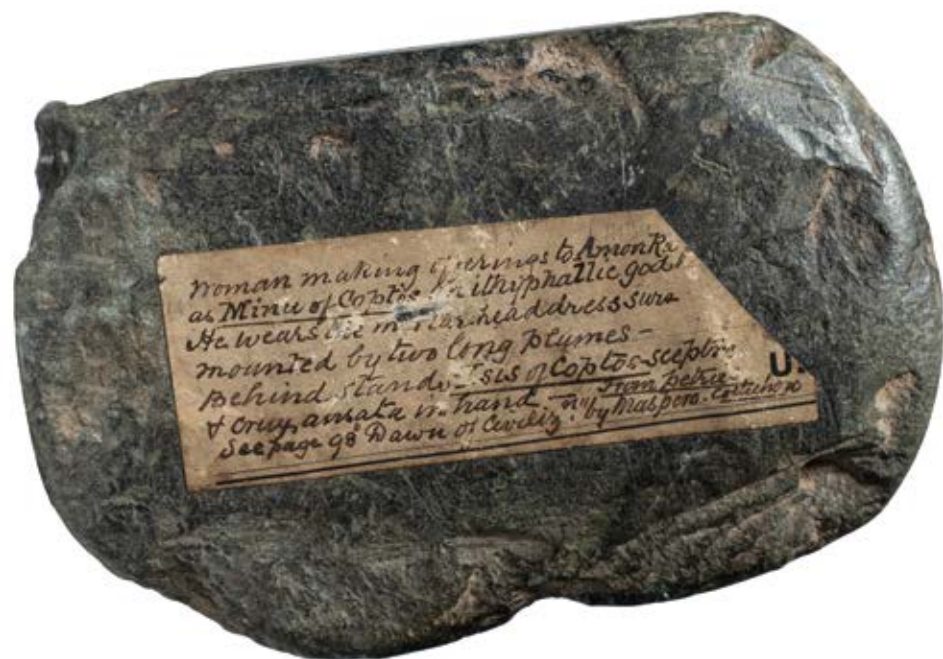 Woman making offerings to AmonRa
as Minu of Coptos an ithyphallic god
He wears the mortar headdress sur
mounted by two long plumes –
Behind stands Isis of Coptos – sceptre
& crux ansata in hand –
See page 98 "Dawn of Civilizn" by Maspero.
From Petrie
U.